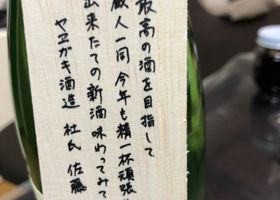 最高の酒を目指して
蔵人一同 今年も精一杯頑張
出来たての新酒味わってみて
ヤヱガキ酒造 杜氏 佐藤